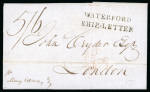 WATERFORD
SHIP-LETTER
5/6
John Ryder Esq
London